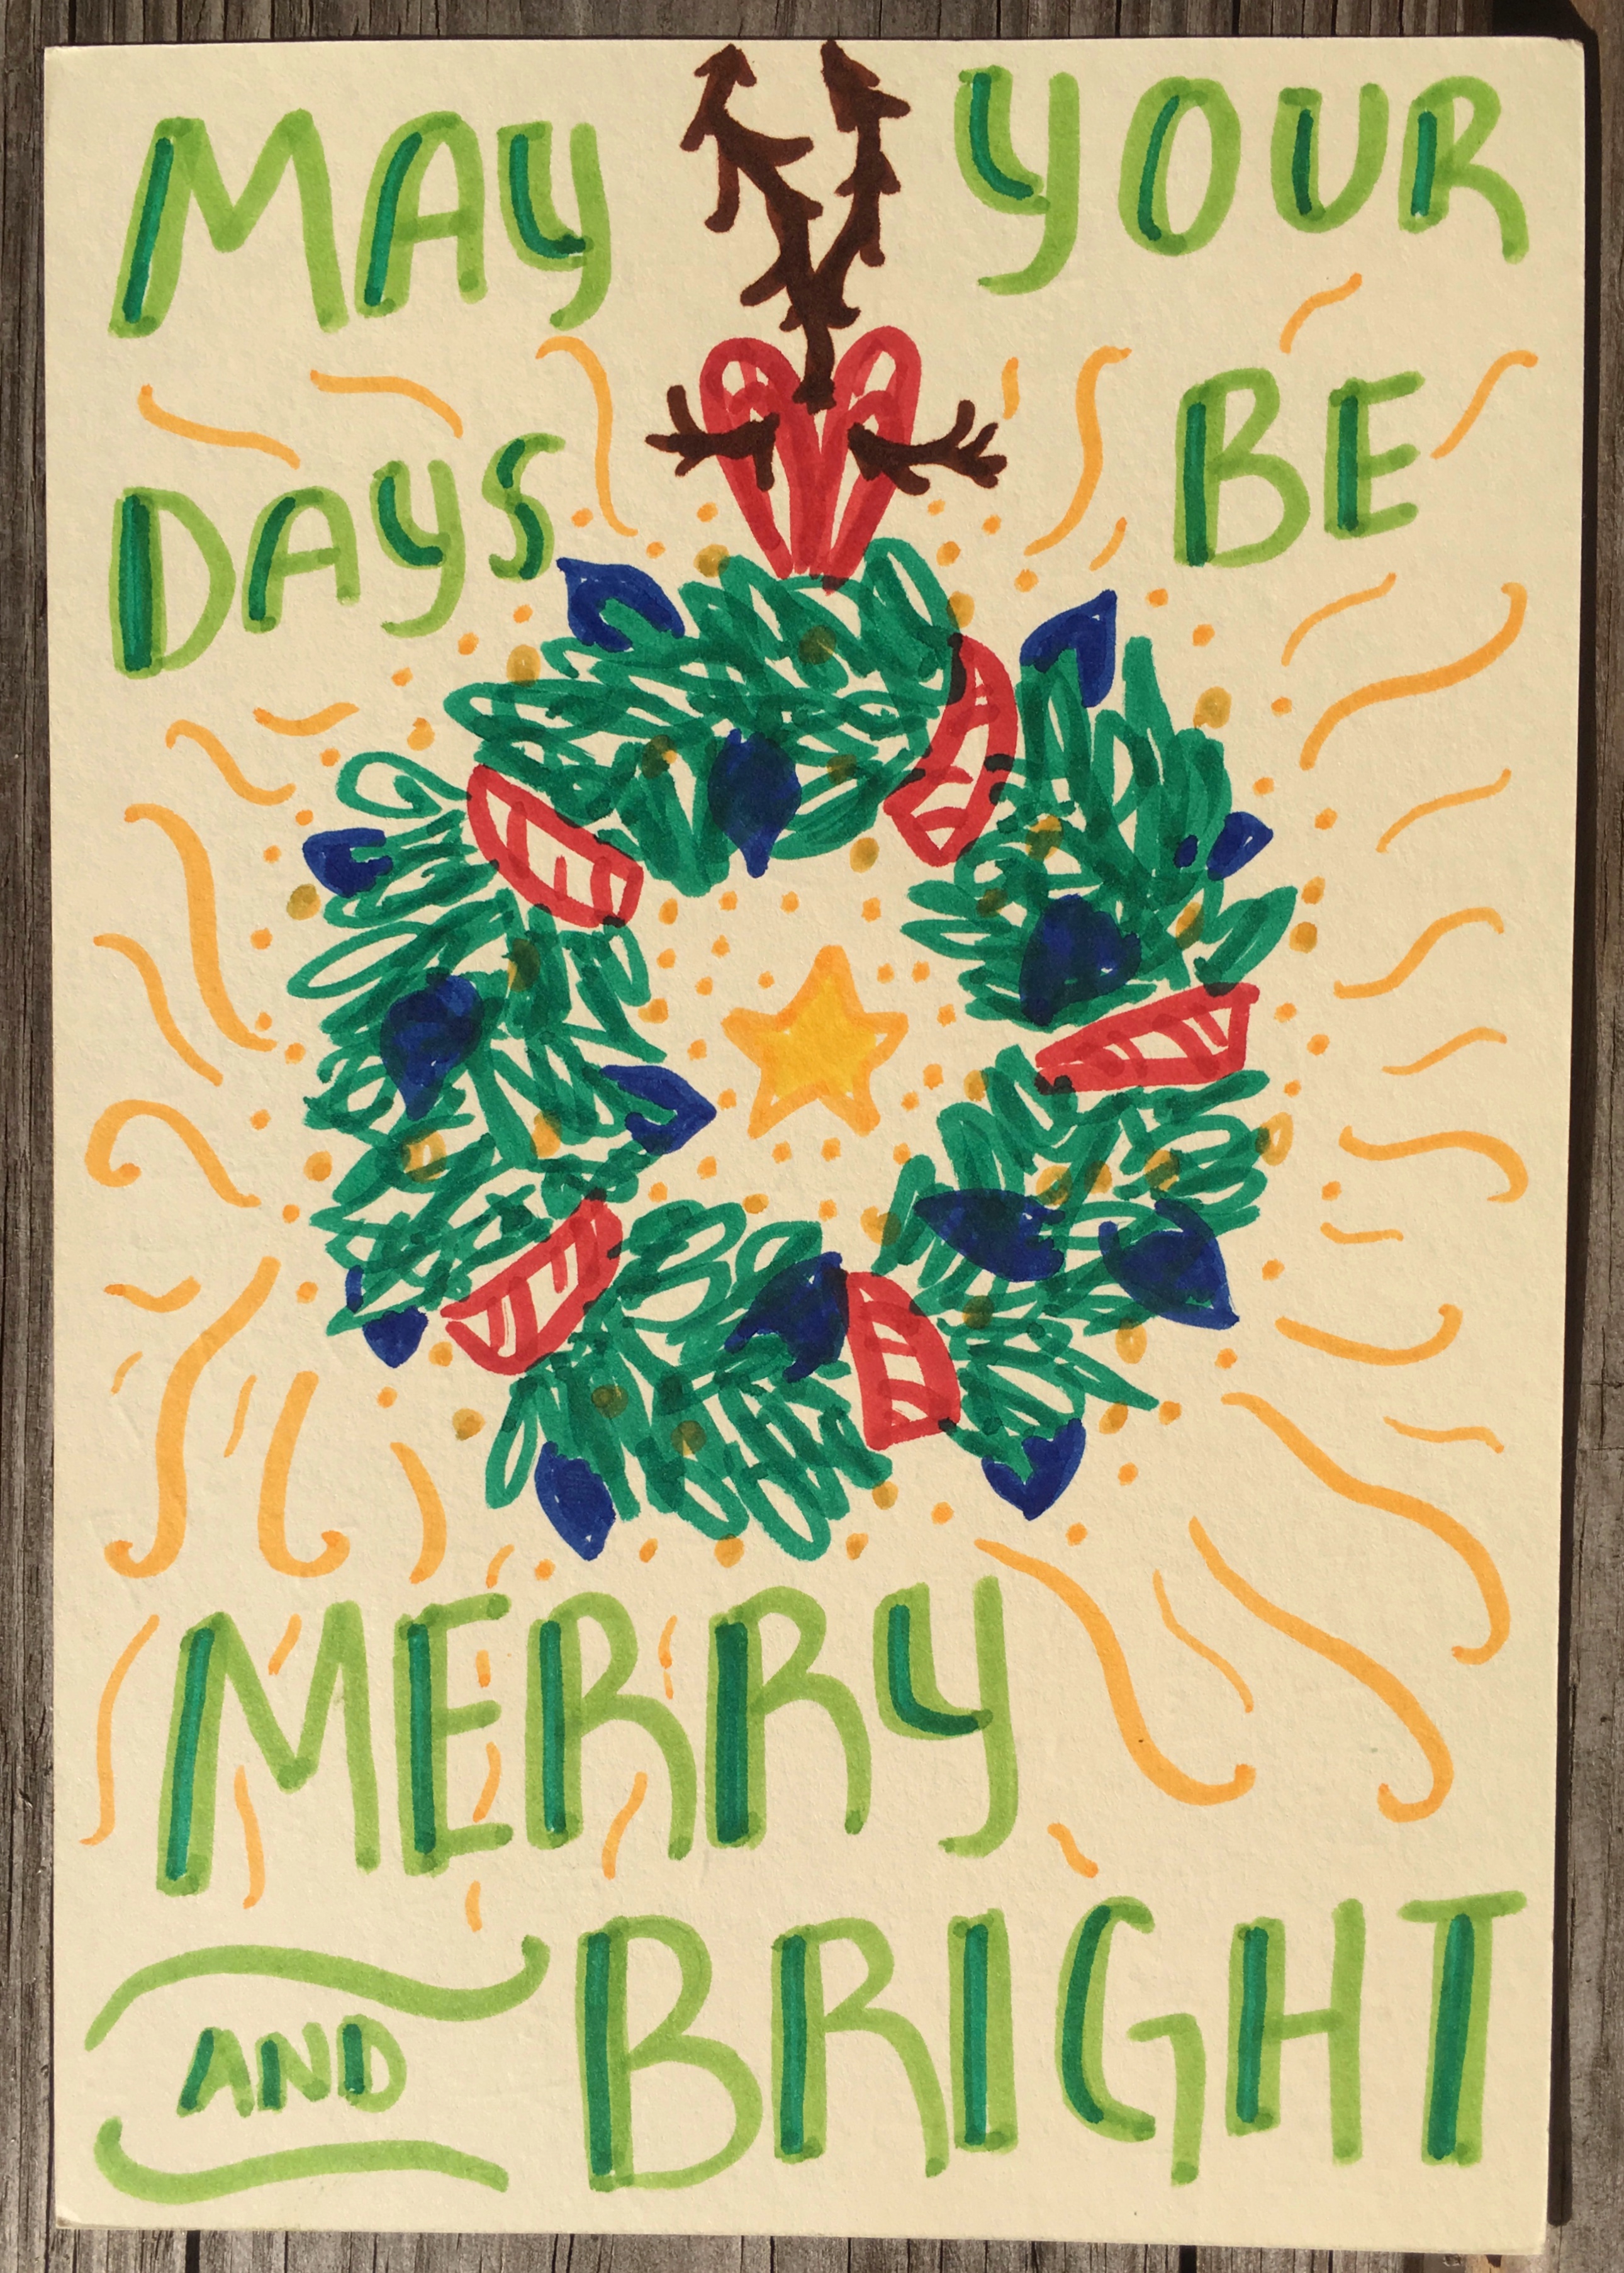 MAY YOUR
DAYS BE
MERRY
AND BRIGHT